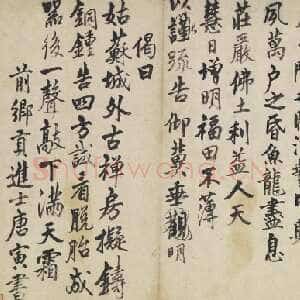 風萬戶之昏魚龍盡息
莊嚴佛土利益人天
慧日增明福田不薄
謹疏告仰冀垂觀明
偈曰
姑蘇城外古禪房擬鑄
銅鍾告四方試看脫胎成
器後一聲敲下滿天霜
前鄉貢進士唐寅書